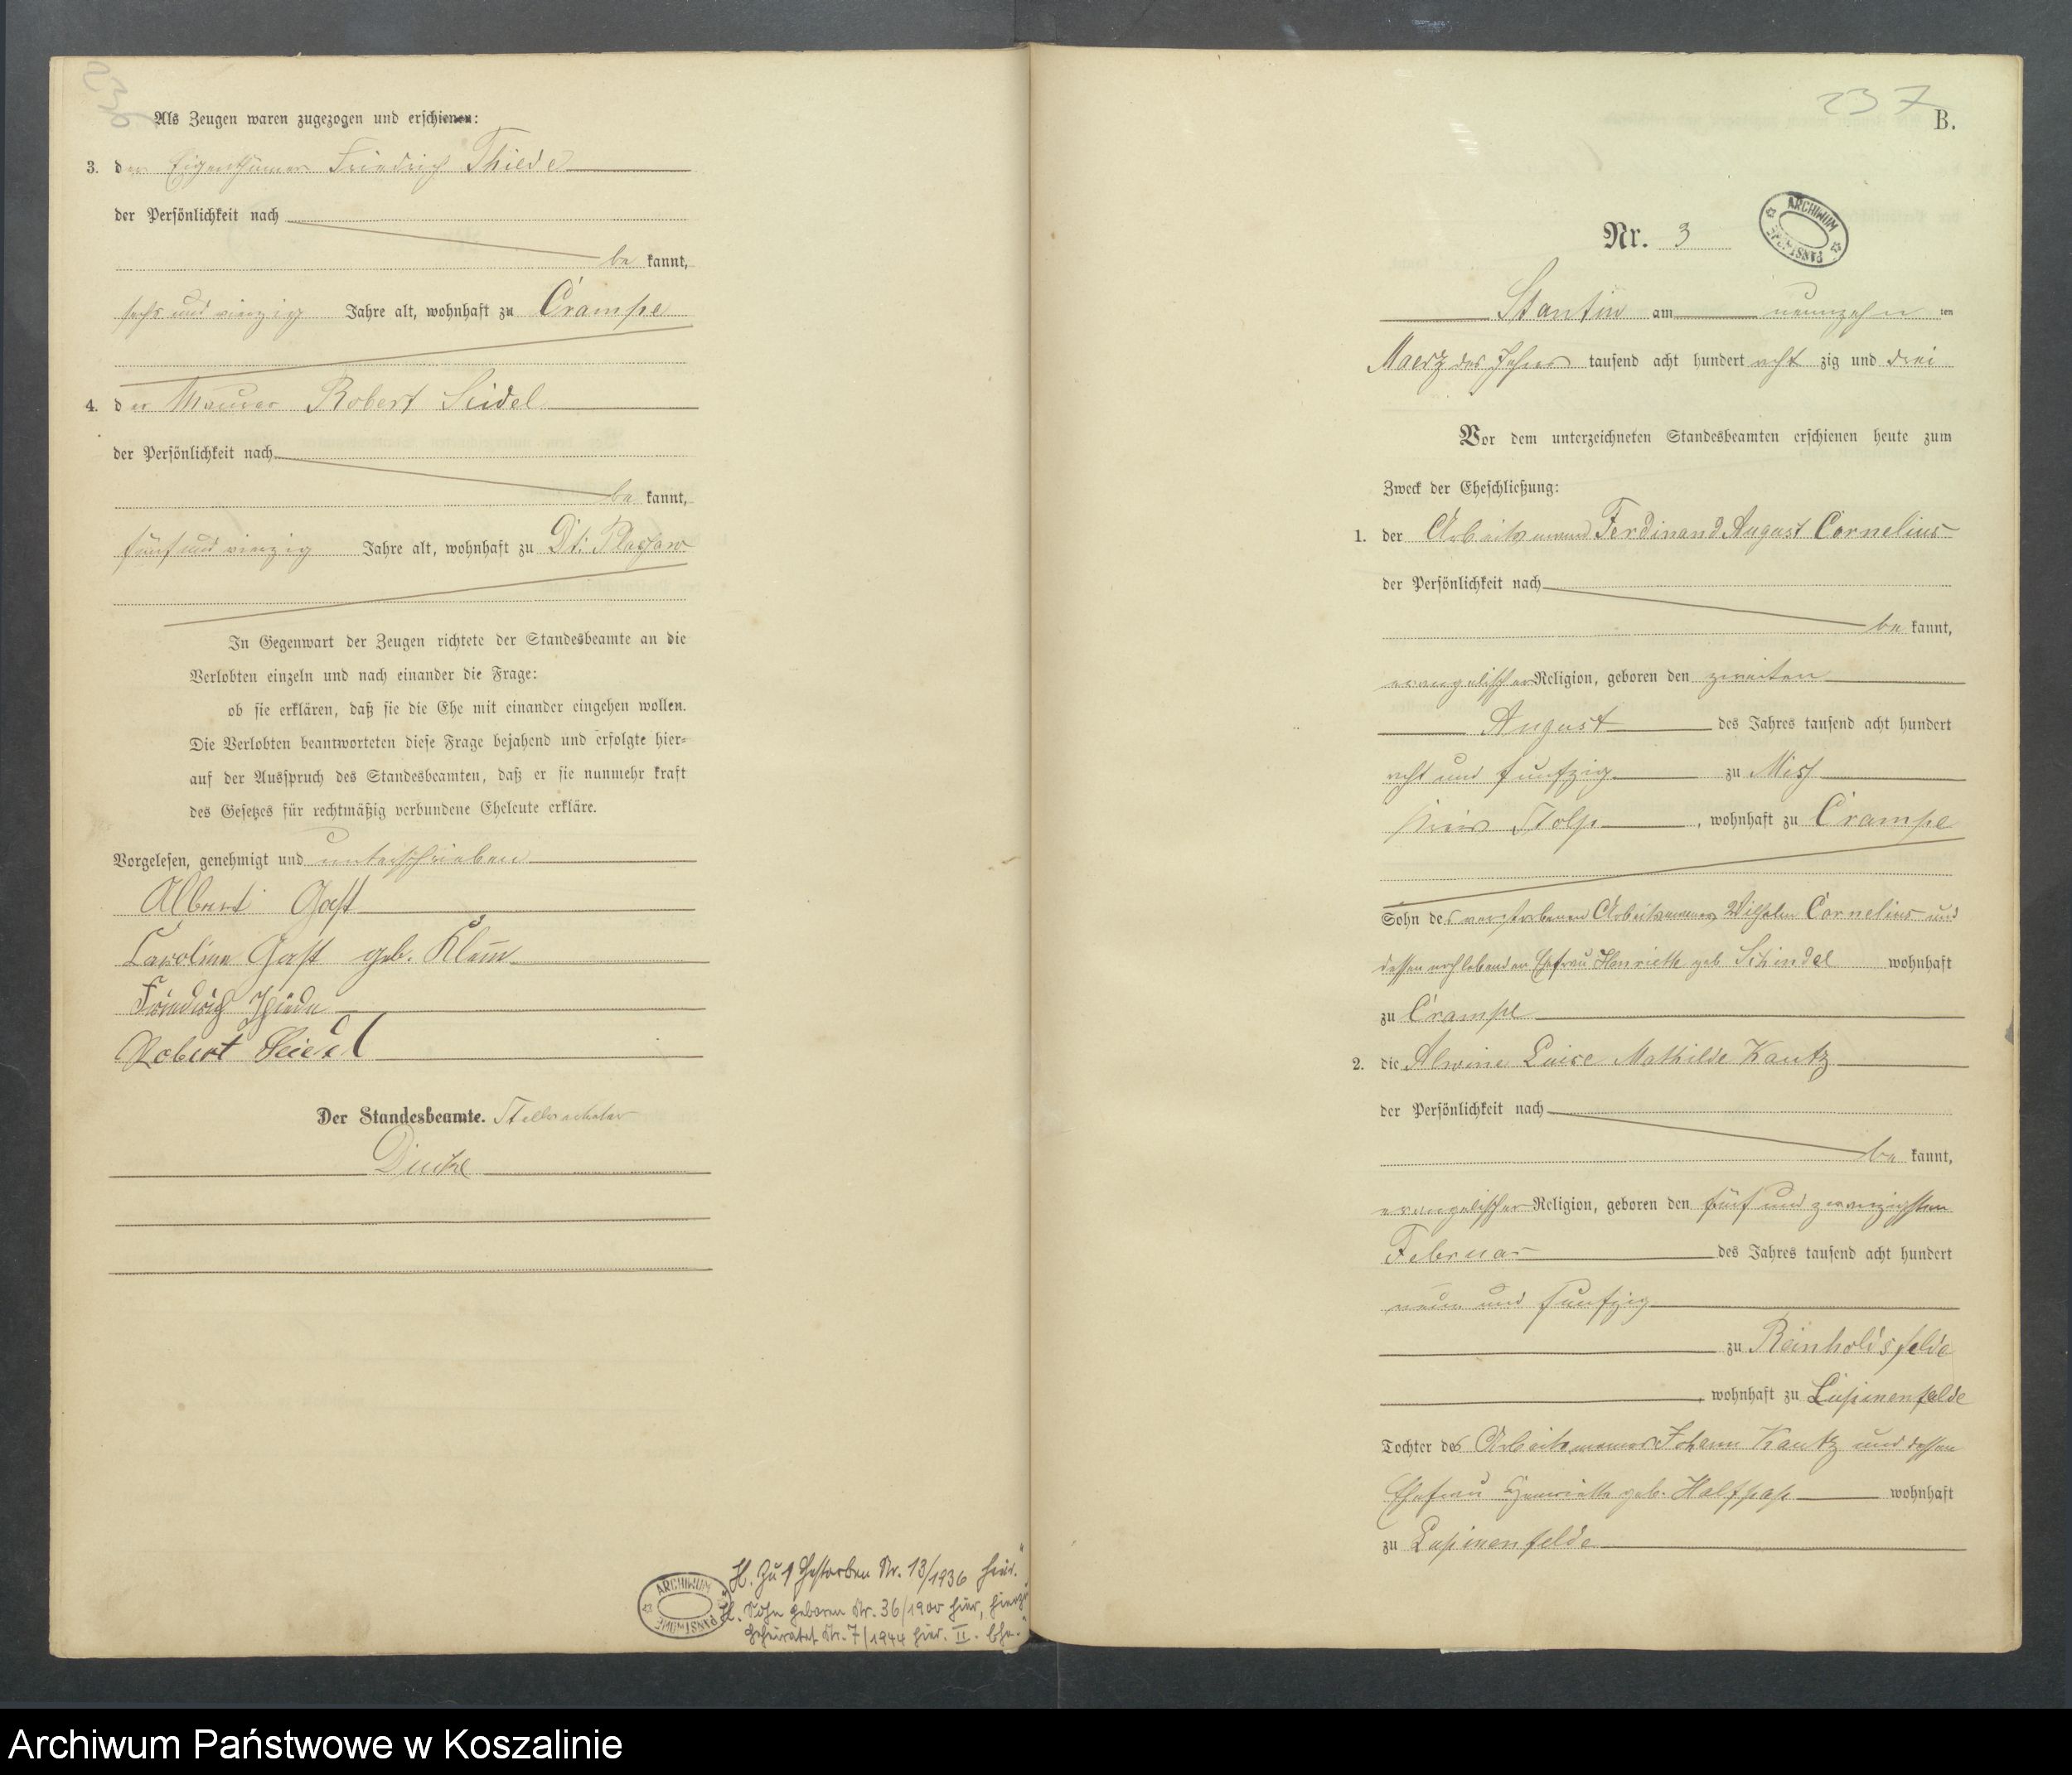 236
Als Zeugen waren zugezogen und erschienen:
3. der Eigenthümer Friedrich Thiede
der Persönlichkeit nach
be kannt,
sechs und vierzig Jahre alt, wohnhaft zu Crampe
4. der Maurer Robert Seidel
der Persönlichkeit nach
be kannt,
fünf und vierzig Jahre alt, wohnhaft zu Dt: Plassow
In Gegenwart der Zeugen richtete der Standesbeamte an die
Verlobten einzeln und nach einander die Frage:
ob sie erklären, daß sie die Ehe mit einander eingehen wollen.
Die Verlobten beantworteten diese Frage bejahend und erfolgte hier-
auf der Ausspruch des Standesbeamten, daß er sie nunmehr kraft
des Gesetzes für rechtmäßig verbundene Eheleute erkläre.
Vorgelesen, genehmigt und unterschrieben
Albert Gast
Caroline Gast geb. Klem̄
Friedrich Thiede
Robert Seidel
Der Standesbeamte. Stellvertreter
H. Zu 1 Gestorben Nr. 13/1936 hier.
H. Sohn geboren Nr. 36/1900 hier, hierzu
Geheiratet Nr. 7/1944 hier. II. Ehe.
ARCHIWUM PAŃSTWOWE
237
B.
Nr. 3
ARCHIWUM PAŃSTWOWE
Stantin am neunzehn ten
Maerz des Jahres tausend acht hundert acht zig und drei
Vor dem unterzeichneten Standesbeamten erschienen heute zum
Zweck der Eheschließung:
1. der Arbeitsmann Ferdinand August Cornelius
der Persönlichkeit nach
be kannt,
evangelischer Religion, geboren den zweiten
August des Jahres tausend acht hundert
acht und funfzig zu
Kreis Stolp, wohnhaft zu Crampe
Sohn des verstorbenen Arbeitsmannes Wilhelm Cornelius und
dessen noch lebenden Ehefrau Henriette geb Schindel wohnhaft
zu Crampe
2. die Alwine Luise Mathilde Kautz
der Persönlichkeit nach
be kannt,
evangelischer Religion, geboren den fünf und zwanzigsten
Februar des Jahres tausend acht hundert
neun und funfzig
zu Reinholdsfelde
, wohnhaft zu Lupinenfelde
Tochter des Arbeitsmannes Johann Kautz und dessen
Ehefrau Henriette geb. Halfpap wohnhaft
zu Lupinenfelde
Archiwum Państwowe w Koszalinie